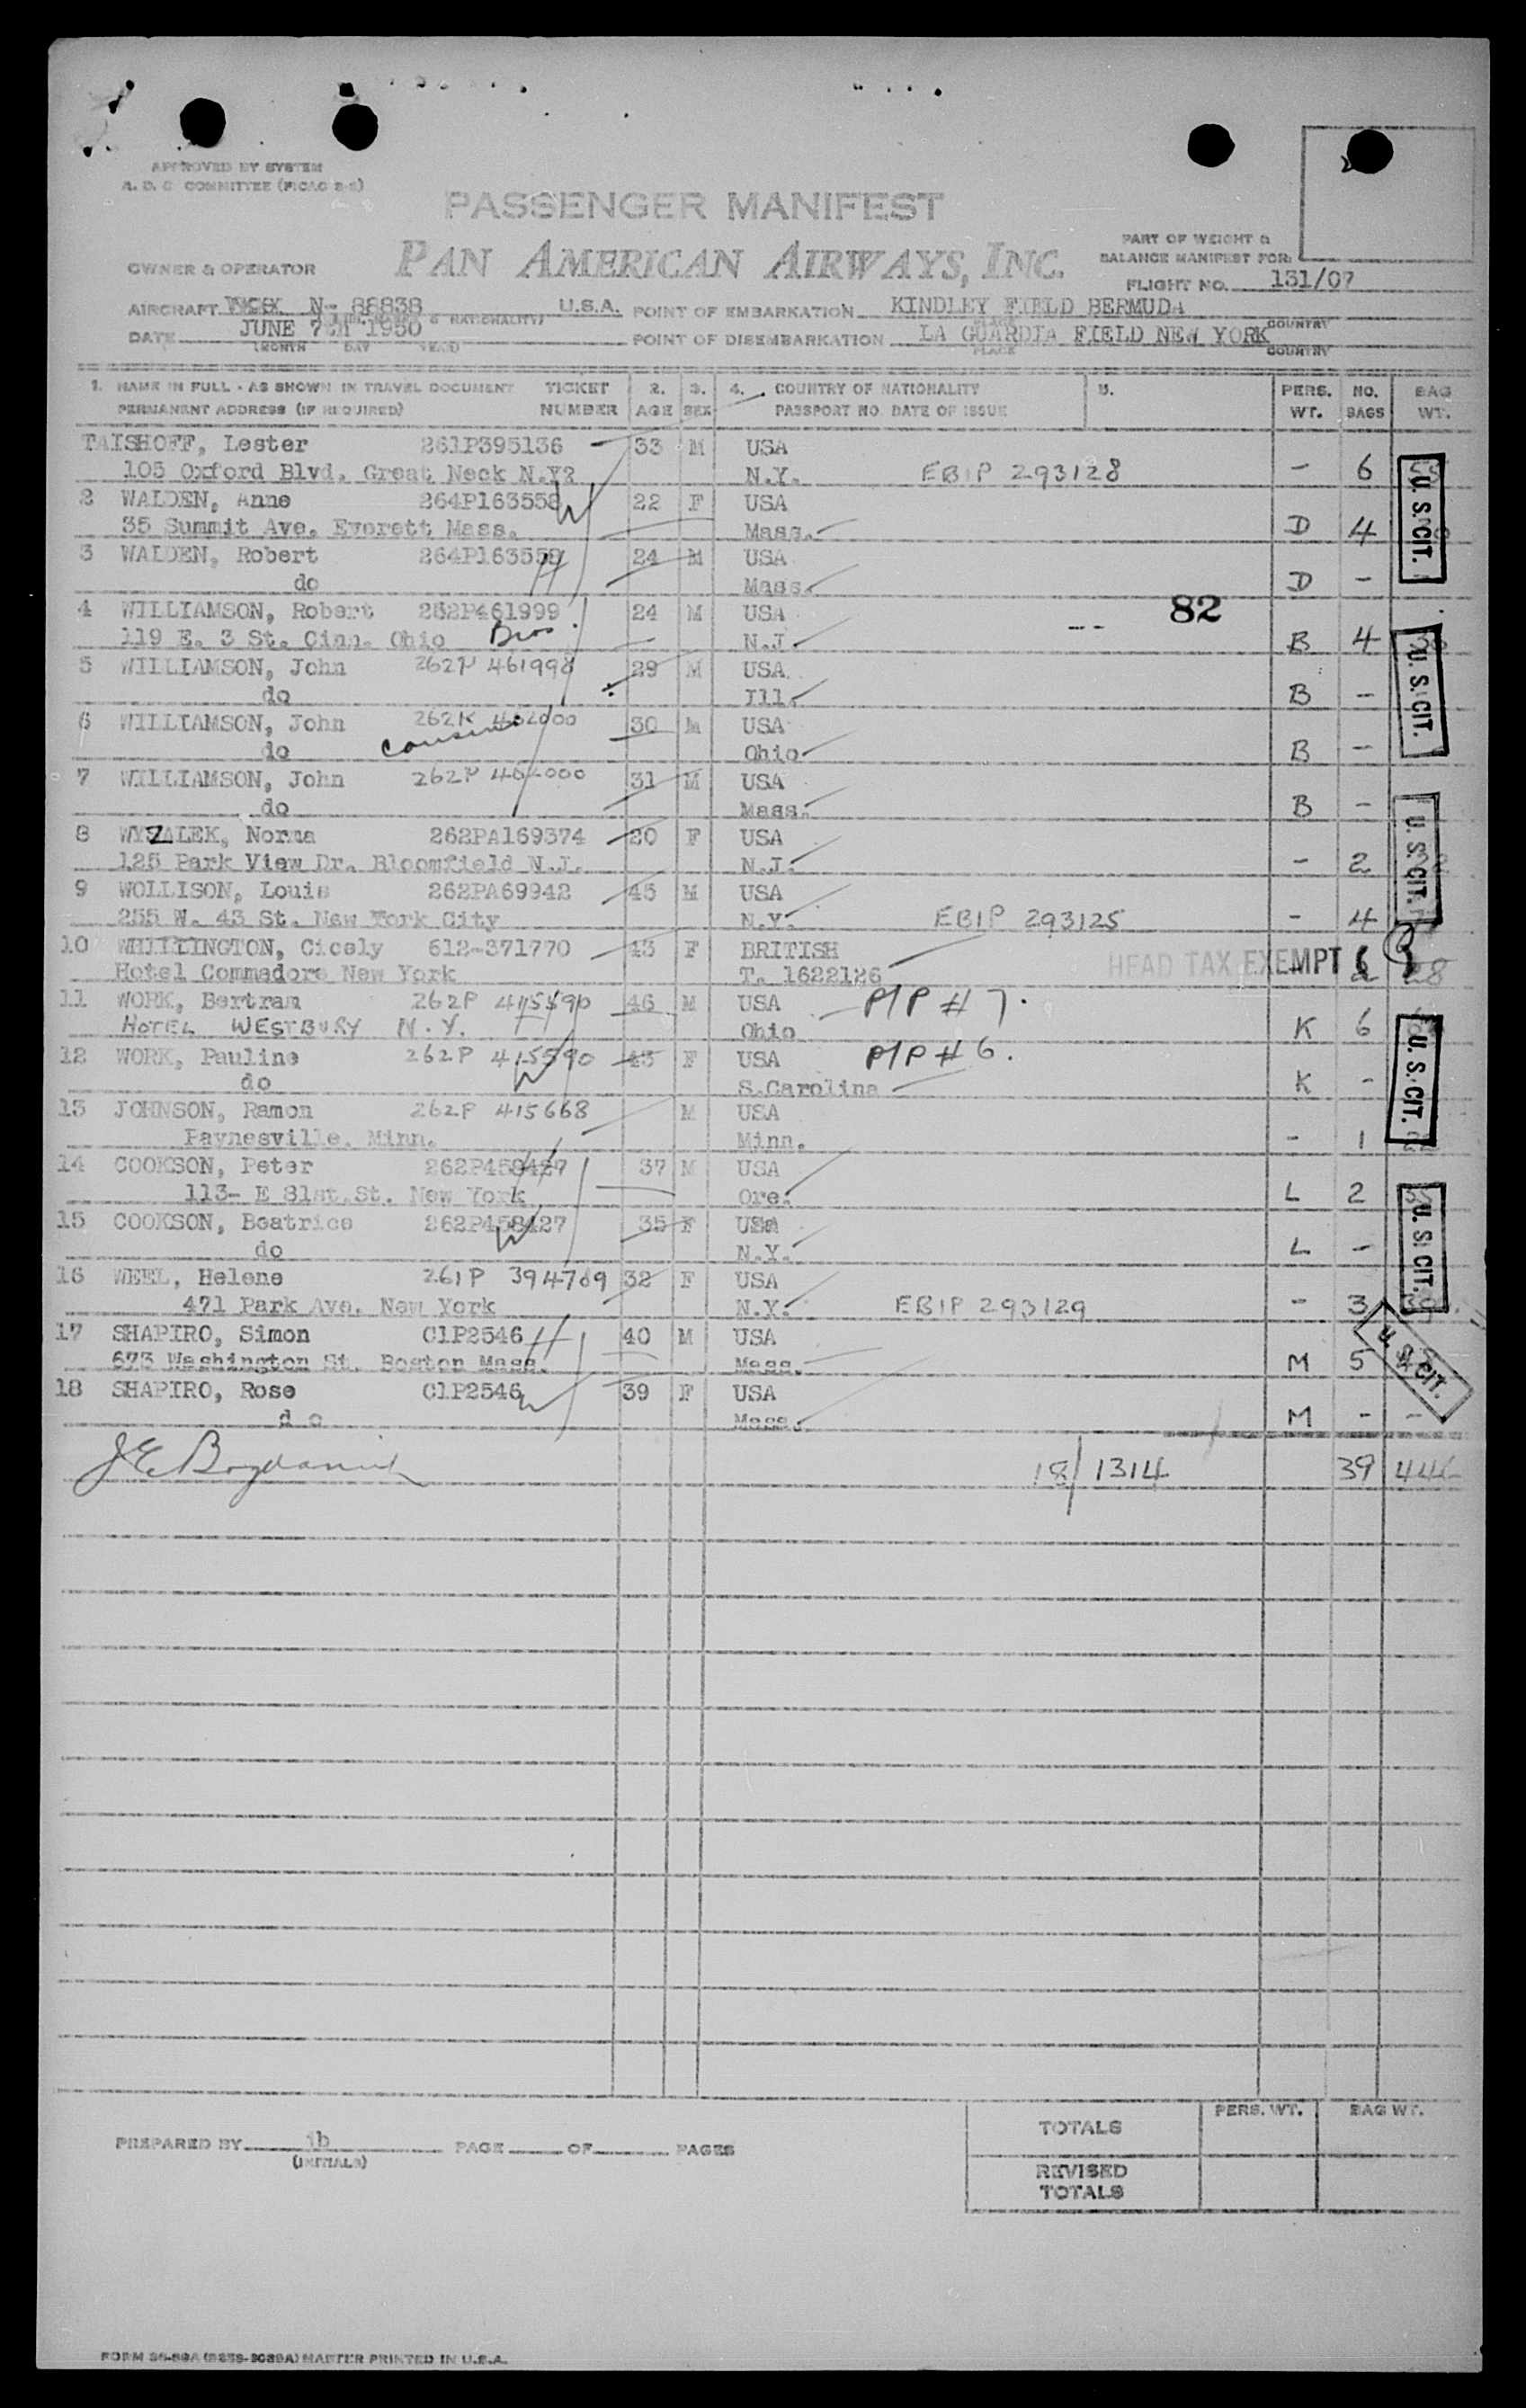 APPROVED BY SYSTEM
A. D. C COMMITTEE (FICAO 2-2)
PASSENGER MANIFEST
PAN AMERICAN AIRWAYS, INC.
PART OF WEIGHT &
BALANCE MANIFEST FOR:
OWNER & OPERATOR
FLIGHT NO. 131/07
AIRCRAFT N- 88838 U.S.A. POINT OF EMBARKATION KINDLEY FIELD BERMUDA
& NATIONALITY) PLACE COUNTRY
DATE JUNE 7 1950 POINT OF DISEMBARKATION LA GUARDIA FIELD NEW YORK
(MONTH DAY YEAR) PLACE COUNTRY
1. NAME IN FULL - AS SHOWN IN TRAVEL DOCUMENT TICKET 2. 3. 4. COUNTRY OF NATIONALITY 5. PERS. NO. BAG
PERMANENT ADDRESS (IF REQUIRED) NUMBER AGE SEX PASSPORT NO. DATE OF ISSUE WT. BAGS WT.
TAISHOFF, Lester 261P395136 33 M USA
105 Oxford Blvd. Great Neck N.Y? N.Y. EBIP 293128 - 6
U. S. CIT.
2 WALDEN, Anne 264P163558 22 F USA
35 Summit Ave. Everett Mass. Mass. D 4
3 WALDEN, Robert 264P163558 24 M USA
do Mass. D -
4 WILLIAMSON, Robert 262P461999 24 M USA -- 82
119 E. 3 St. Cinn. Ohio Bros. N.J B 4
U. S. CIT.
5 WILLIAMSON, John 262P 461998 29 M USA
do Ill. B -
6 WILLIAMSON, John 30 M USA
do cousins Ohio B -
7 WILLIAMSON, John 31 M USA
do Mass. B -
8 WYZALEK, Norma 262PA169374 20 F USA
125 Park View Dr. Bloomfield N.J. N.J. - 2
U. S. CIT.
9 WOLLISON, Louis 262PA69942 45 M USA
255 W. 43 St. New York City N.Y. EBIP 293125 - 4
10 WHITTINGTON, Cicely 612-371770 43 F BRITISH
Hotel Commadore New York T. 1622126 HEAD TAX EXEMPT 28
11 WORK, Bertram 262P 415590 46 M USA P/P # 7.
HOTEL WESTBURY N.Y. Ohio K 6
U. S. CIT.
12 WORK, Pauline 262P 415590 43 F USA P/P # 6.
do S.Carolina K -
13 JOHNSON, Ramon 262P 415668 M USA
Paynesville, Minn. Minn. - 1
14 COOKSON, Peter 262P458427 37 M USA
113- E 81st.St. New York Ore. L 2
U. S. CIT.
15 COOKSON, Beatrice 262P458427 35 F USA
do N.Y. L -
16 WEEL, Helene 261P 394769 32 F USA
471 Park Ave. New York N.Y. EBIP 293129 - 3
17 SHAPIRO, Simon C1P2546 40 M USA
673 Washington St. Boston Mass. Mass. M 5
U. S. CIT.
18 SHAPIRO, Rose C1P2546 39 F USA
d o Mass. M - -
18/ 1314 39
TOTALS PERS. WT. BAG WT.
PREPARED BY jb PAGE OF PAGES
(INITIALS)
REVISED
TOTALS
MASTER PRINTED IN U.S.A.